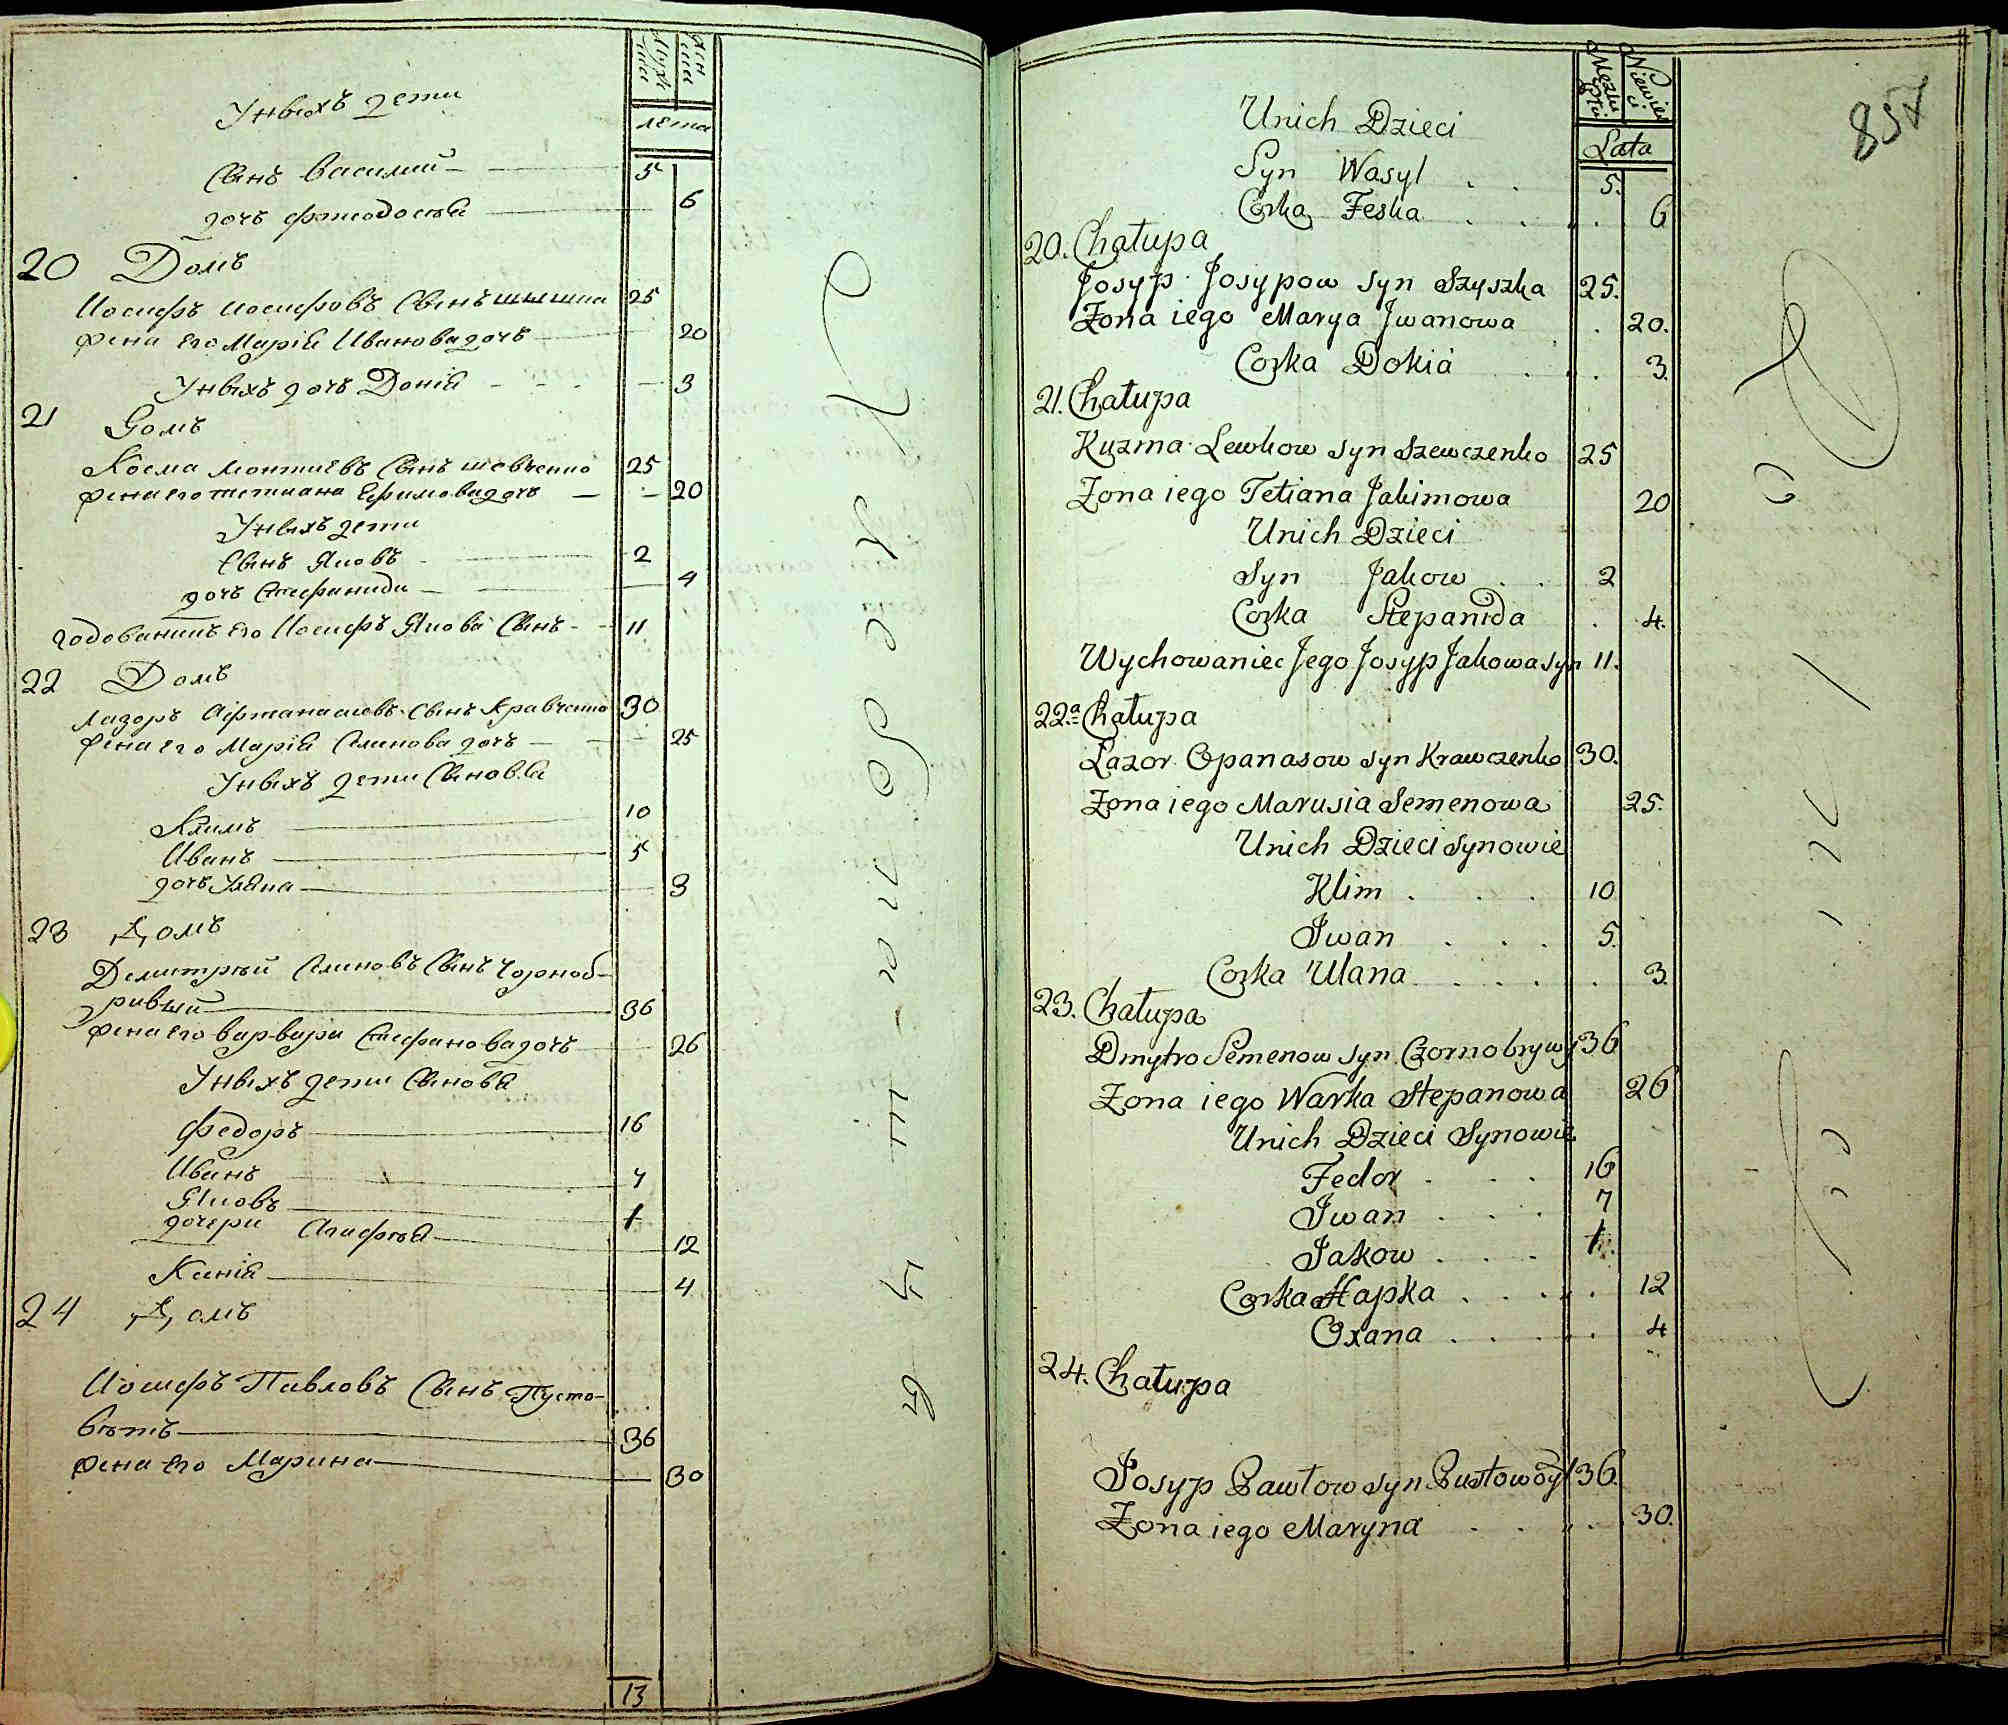 Мужска
Женска
лета
Унихъ дети
Сынъ Василий 5
дочъ Феодосия 6
20 Домъ
Иосифъ Иосифовъ Сынъ шышка 25
жена Его Мария Иванова дочъ 20
Унихъ дочъ Докия 3
21 Домъ
Косма Леонтиевъ Сынъ шевченко 25
жена Его тетиана Ефимова дочъ 20
Унихъ дети
Сынъ Яковъ 2
дочъ Стефанида 4
годованецъ Его Иосифъ Якова Сынъ 11
22 Домъ
Лазоръ Афтанасиевъ Сынъ Кравченко 30
жена Его Мария Семенова дочъ 25
Унихъ дети Синовя
Климъ 10
Иванъ 5
дочъ Уляна 3
23 Домъ
Демитрий Семеновъ Сынъ Чорноб-
ривый 36
жена Его варвара Стефанова дочъ 26
Унихъ дети Синовя
Федоръ 16
Иванъ 7
Яковъ 1
дочери Агафия 12
Ксения 4
24 Домъ
Иосифъ Павловъ Сынъ Пусто-
витъ 36
жена Его Марина 30
13
857
Lata
Unich Dzieci
Syn Wasyl . . 5.
Corka Feska . . . . 6
20. Chałupa
Josyp Josypow syn Szyszka 25.
Zona iego Marya Jwanowa . 20.
Corka Dokia . . . 3.
21. Chałupa
Kuzma Lewkow syn Szewczenko 25
Zona iego Tetiana Jakimowa 20
Unich Dzieci
Syn Jakow . . 2
Corka Stepanida . 4.
Wychowaniec Jego Josyp Jakowa syn 11.
22a Chałupa
Łazor Opanasow syn Krawczenko 30.
Zona iego Marusia Semenowa 25.
Unich Dzieci Synowie
Klim . . . 10
Jwan . . . 5.
Corka Ulana . . . . . 3.
23. Chałupa
Dmytro Semenow syn Czornobrywy 36
Zona iego Warka Stepanowa 26
Unich Dzieci Synowie
Fedor . . . 16
Jwan . . . 7
Jakow . . . 1.
Corka Hapka . . . . . 12
Oxana . . . . . 4
24. Chałupa
Josyp Pawłow syn Pustowoyt 36.
Zona iego Maryna . . . . 30.